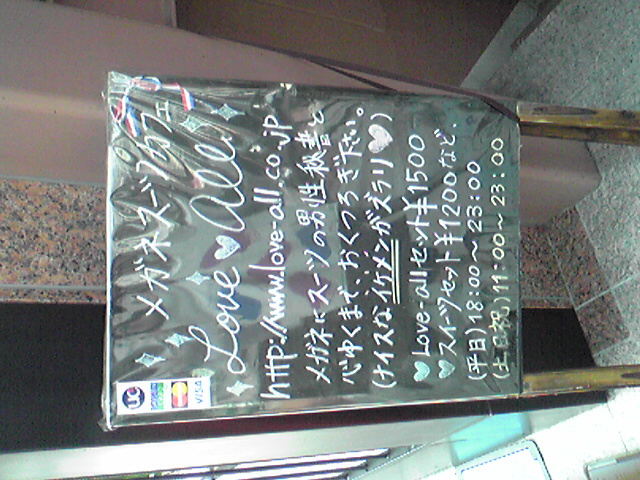 メガネズ
Love♡all
http://www.love-all.co.jp
メガネにスーツの男性秘書と
心ゆくまで、おくつろぎ下さい。
(ナイスなイケメンがズラリ♡)
♡Love-allセット¥1500
♡スイーツセット¥1200など.
(平日)18:00〜23:00
(土日祝)11:00〜23:00
UC
VISA